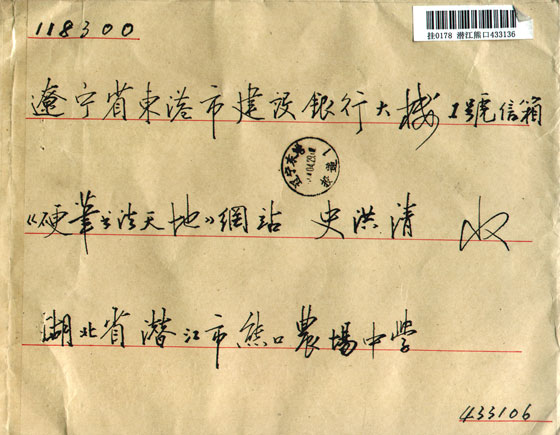 118300
挂0178 潜江熊口433136
遼宁省東港市建设銀行大楼1號信箱
《硬筆书法天地》網站 史洪清 收
湖北省潜江市熊口農場中学
433106